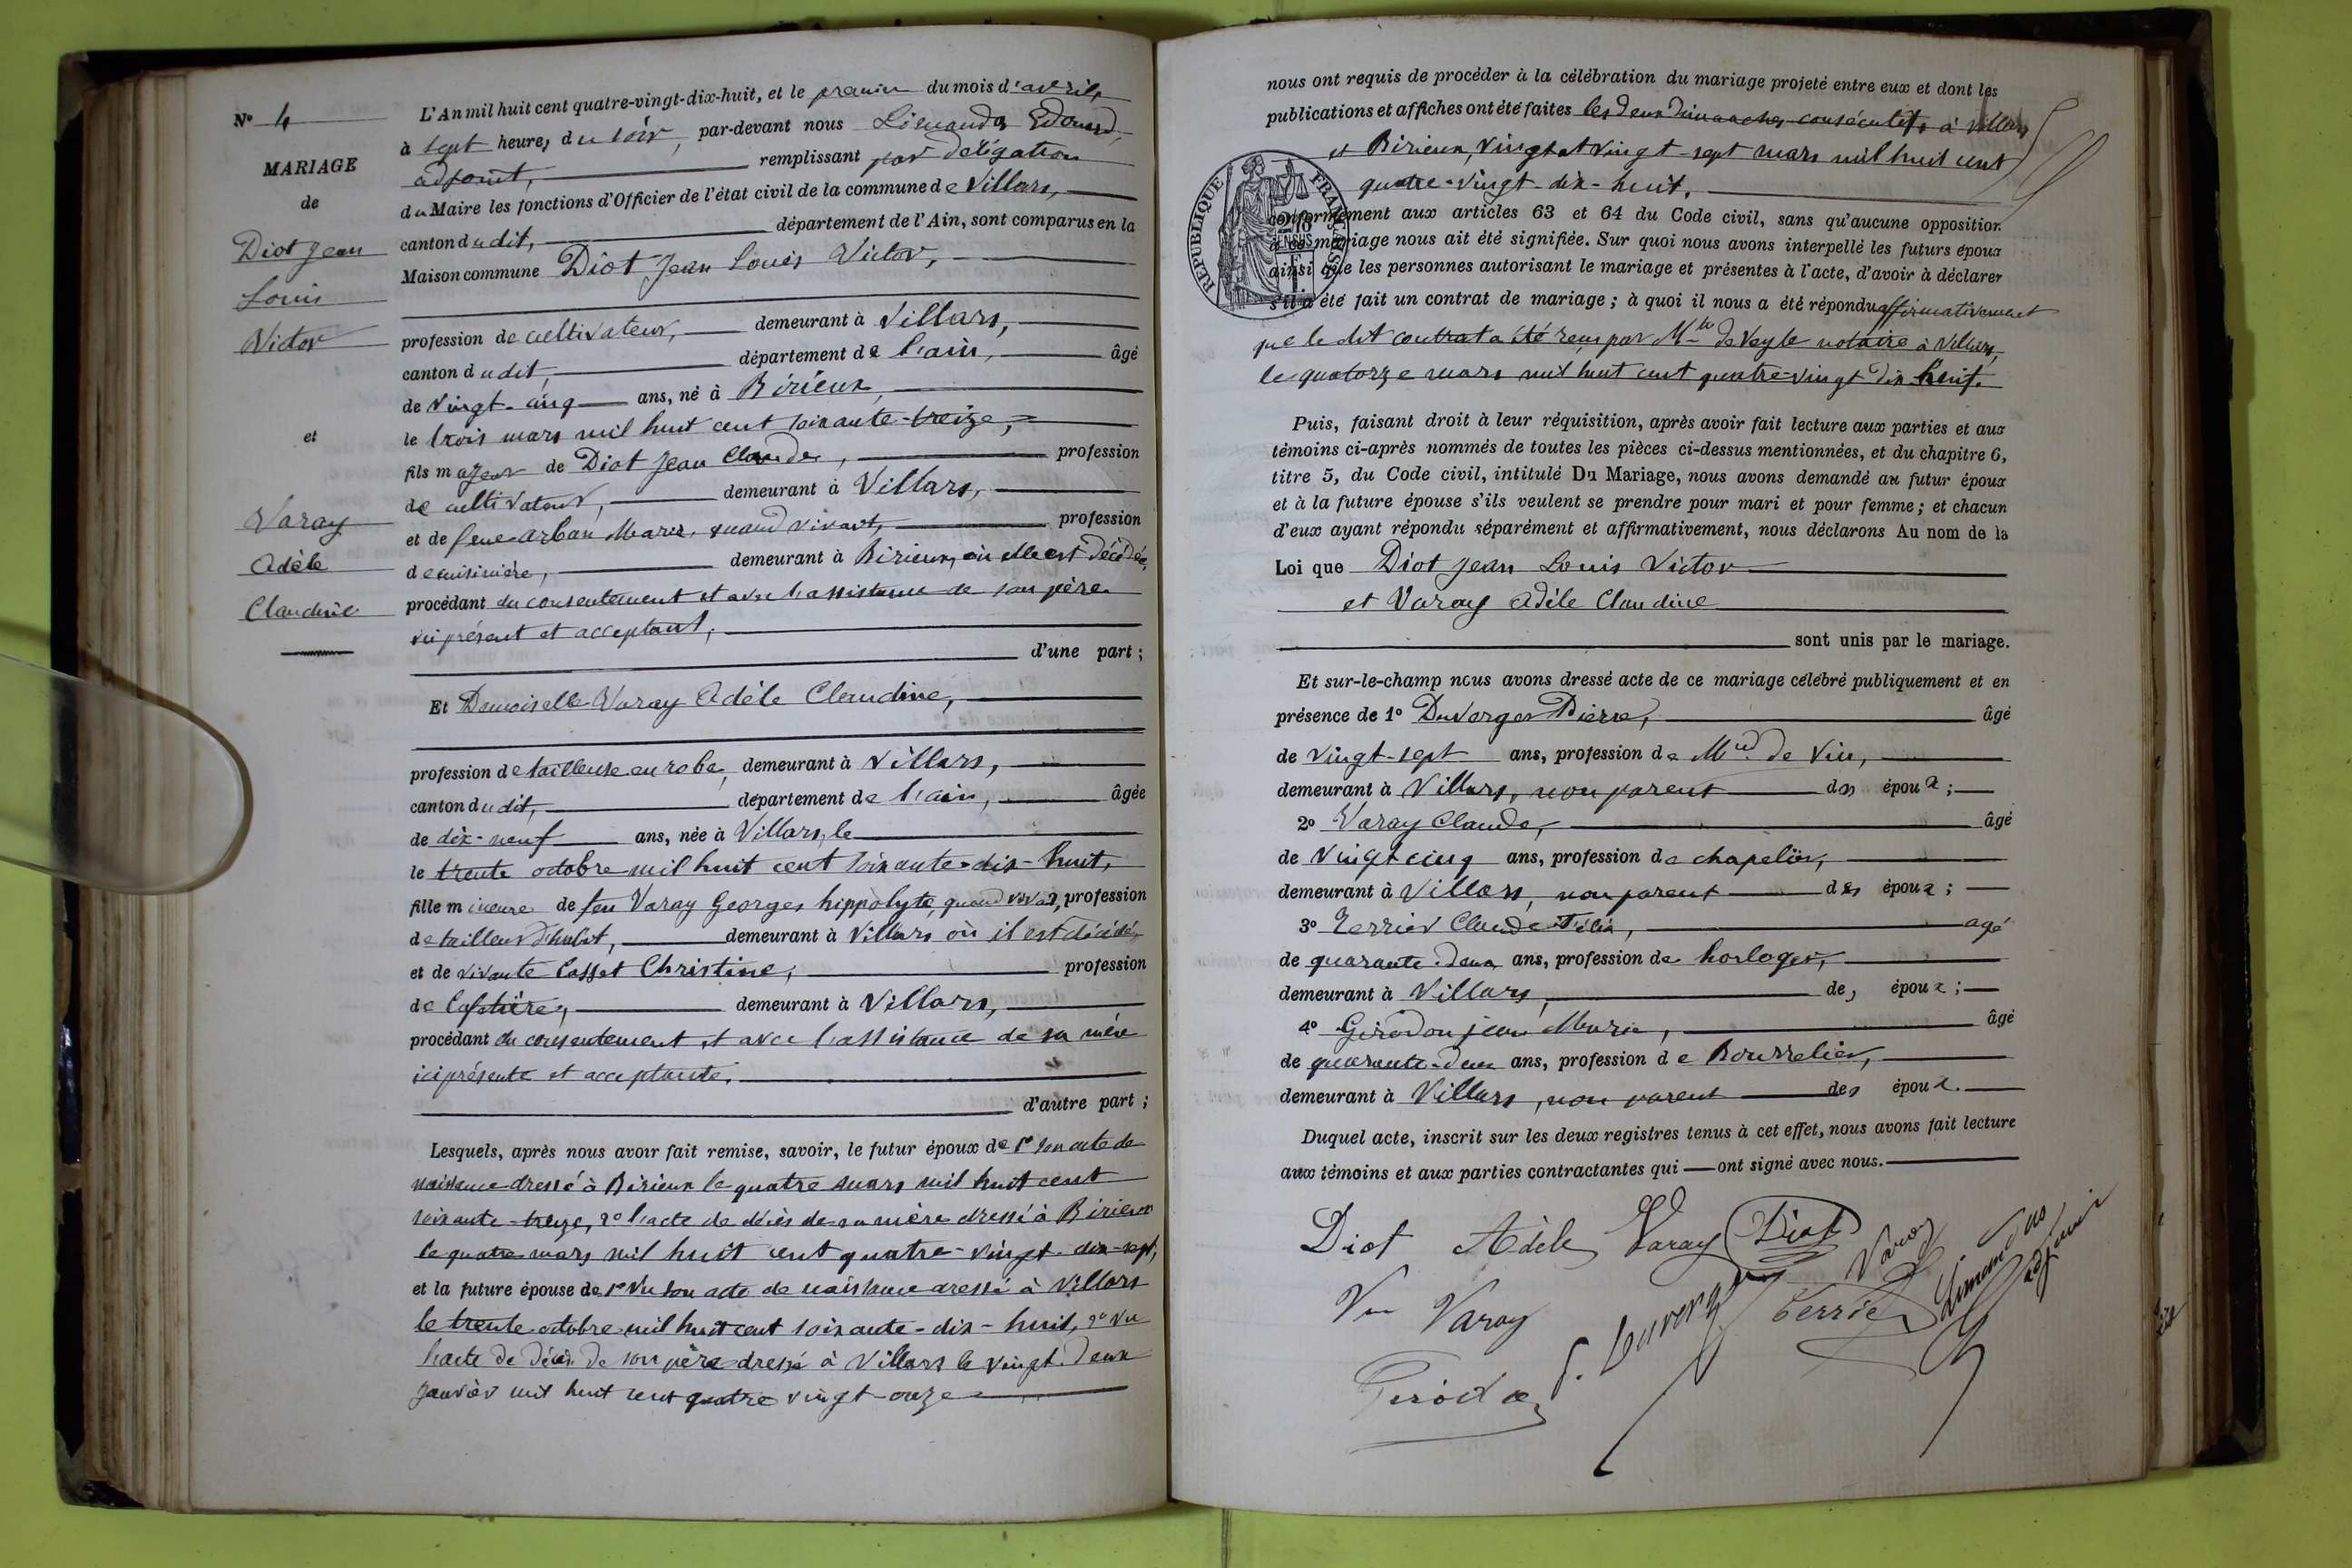 N° 4
MARIAGE
de
Diot Jean
Louis
Victor
et
Varay
Adèle
Claudine
L'An mil huit cent quatre-vingt-dix-huit, et le premier du mois d'avril,
à sept heures du soir, par-devant nous Limandas Edouard,
adjoint, remplissant par délégation
du Maire les fonctions d'Officier de l'état civil de la commune de Villars,
canton dudit, département de l'Ain, sont comparus en la
Maison commune Diot Jean Louis Victor,
profession de cultivateur, demeurant à Villars,
canton dudit, département de l'ain, âgé
de vingt-cinq ans, né à Birieux,
le trois mars mil huit cent soixante-treize,
fils majeur de Diot Jean Claude, profession
de cultivateur, demeurant à Villars,
et de feue Arban Marie, quand vivait, profession
de cuisinière, demeurant à Birieux, où elle est décédée,
procédant du consentement et avec l'assistance de son père
ici présent et acceptant,
d'une part ;
Et Demoiselle Varay Adèle Claudine,
profession de tailleuse en robe, demeurant à Villars,
canton dudit, département de l'ain, âgée
de dix-neuf ans, née à Villars, le
le trente octobre mil huit cent soixante-dix-huit,
fille mineure de feu Varay Georges hippolyte, quand vivait, profession
de tailleur d'habit, demeurant à Villars où il est décédé,
et de vivante Cosset Christine, profession
de Cafetière, demeurant à Villars,
procédant du consentement et avec l'assistance de sa mère
ici présente et acceptante,
d'autre part ;
Lesquels, après nous avoir fait remise, savoir, le futur époux de 1° son acte de
naissance dressé à Birieux le quatre mars mil huit cent
soixante-treize, 2° l'acte de décès de sa mère dressé à Birieux
le quatre mars mil huit cent quatre-vingt-dix-sept,
et la future épouse de 1° Vu son acte de naissance dressé à Villars
le trente octobre mil huit cent soixante-dix-huit, 2° Vu
l'acte de décès de son père dressé à Villars le vingt-deux
janvier mil huit cent quatre vingt-onze
nous ont requis de procéder à la célébration du mariage projeté entre eux et dont les
publications et affiches ont été faites les deux dimanches consécutifs à Villars
et Birieux, vingt et vingt-sept mars mil huit cent
quatre-vingt-dix-huit.
RÉPUBLIQUE FRANÇAISE
conformément aux articles 63 et 64 du Code civil, sans qu'aucune opposition
à ce mariage nous ait été signifiée. Sur quoi nous avons interpellé les futurs époux
ainsi que les personnes autorisant le mariage et présentes à l'acte, d'avoir à déclarer
s'il a été fait un contrat de mariage ; à quoi il nous a été répondu affirmativement
que le dit contrat a été reçu par Mtre de Veyle notaire à Villars,
le quatorze mars mil huit cent quatre-vingt dix huit.
Puis, faisant droit à leur réquisition, après avoir fait lecture aux parties et aux
témoins ci-après nommés de toutes les pièces ci-dessus mentionnées, et du chapitre 6,
titre 5, du Code civil, intitulé Du Mariage, nous avons demandé au futur époux
et à la future épouse s'ils veulent se prendre pour mari et pour femme ; et chacun
d'eux ayant répondu séparément et affirmativement, nous déclarons Au nom de la
Loi que Diot Jean Louis Victor
et Varay Adèle Claudine
sont unis par le mariage.
Et sur-le-champ nous avons dressé acte de ce mariage célébré publiquement et en
présence de 1° Duverger Pierre, âgé
de vingt-sept ans, profession de Md. de Vin,
demeurant à Villars, non parent des époux ;
2° Varay Claude, âgé
de vingt cinq ans, profession de chapelier,
demeurant à Villars, non parent des époux ;
3° Terrier Claude Félix, agé
de quarante-deux ans, profession de horloger,
demeurant à Villars, des époux ;
4° Girodon jean Marie, âgé
de quarante-deux ans, profession de Bourrelier,
demeurant à Villars, non parent des époux.
Duquel acte, inscrit sur les deux registres tenus à cet effet, nous avons fait lecture
aux témoins et aux parties contractantes qui ont signé avec nous.
Diot Adèle Varay Diot Varay
Vve Varay P. Duverger Terrier Limandas adjoint
Girodon